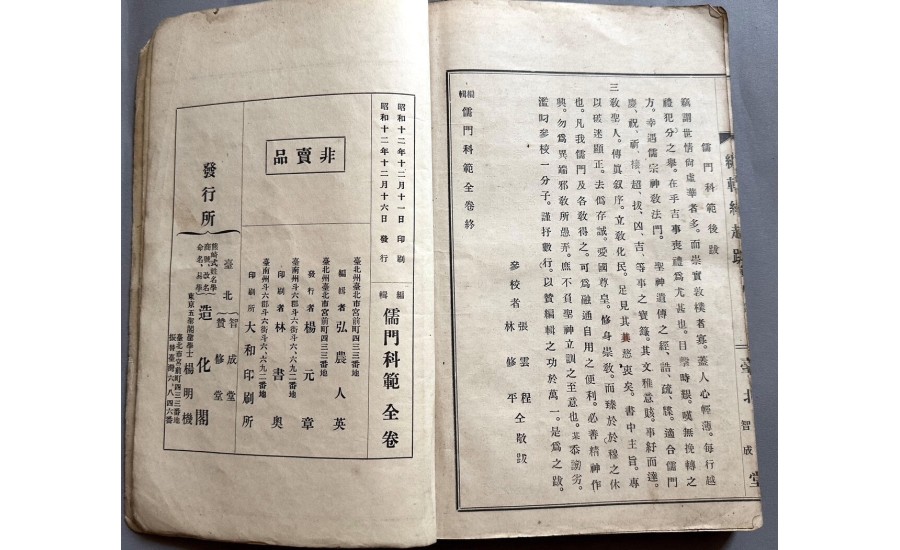 儒門科範後跋
竊謂世情尙虛華者多。而崇實敦樸者寡。蓋人心輕薄。每行越
禮犯分之擧。在乎吉事喪禮爲尤甚也。目擊時艱。嘆無挽轉之
方。幸遇儒宗神敎法門。 聖神遺傳之經、誥、疏、牒。適合儒門
慶、祝、祈、禳、超、拔、凶、吉、等事之寶籙。其文雅意賅。事紓而達。
三敎聖人。傳眞叙序。立敎化民。足見其異慈衷矣。書中主旨。專
以破迷顯正。去僞存誠。愛國尊皇。修身崇敎。而臻於於穆之休
也。凡我儒門及各敎得之。可爲融通自用之便利。必善精神作
興。勿爲異端邪敎所愚弄。庶不負聖神立訓之至意也。某忝謭劣。
濫叼參校一分子。謹抒數行。以贊編輯之功於萬一。是爲之跋。
參校者 張雲程 林修平 仝敬跋
編輯 儒門科範全卷終
臺北智成堂
昭和十二年十二月十一日 印刷
昭和十二年十二月十六日 發行
編輯 儒門科範全卷
非賣品
臺北州臺北市宮前町四三三番地
編輯者 弘農人英
臺北州臺北市宮前町四三三番地
發行者 楊元章
臺南州斗六郡斗六街斗六、六九二番地
印刷者 林書奧
臺南州斗六郡斗六街斗六、六九二番地
印刷所 大和印刷所
發行所
臺北 智成堂 贊修堂
熊崎式姓名學
商號、改名
命名、易學
造化閣
東京五聖閣建學士 楊明機
臺北市宮前町四三三番地
振替臺灣六八四六番